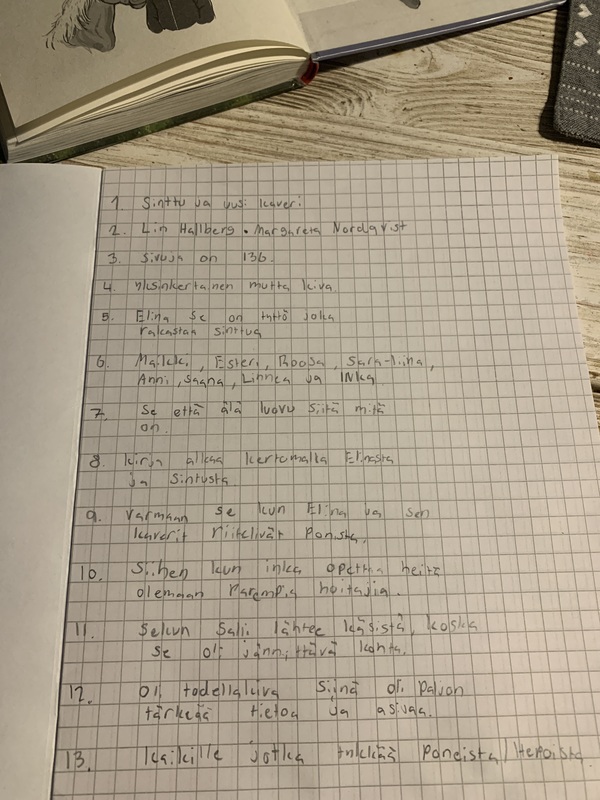 1. Sinttu ja uusi kaveri
2. Lin Hallberg • Margareta Nordqvist
3. Sivuja on 136.
4. Yksinkertainen mutta kiva.
5. Elina se on tyttö joka
rakastaa sinttua
6. Maikki, Esteri, Roosa, Sara-liina,
Anni, Sagna, Linnea ja INka
7. Se että älä luovu siitä mitä
on.
8. kirja alkaa kertomalla Elinasta
ja Sintusta
9. Varmaan se kun Elina ja sen
kaverit riitelivät Ponista.
10. Siihen kun inka opettaa heitä
olemaan Parempia hoitajia.
11. Sekun Sali lähtee käsistä, koska
se oli jännittävä kohta.
12. Oli todellakiva siinä oli Paljon
tärkeää tietoa ja asiaa.
13. kaikille jotka tykkää Poneista/Hepoista